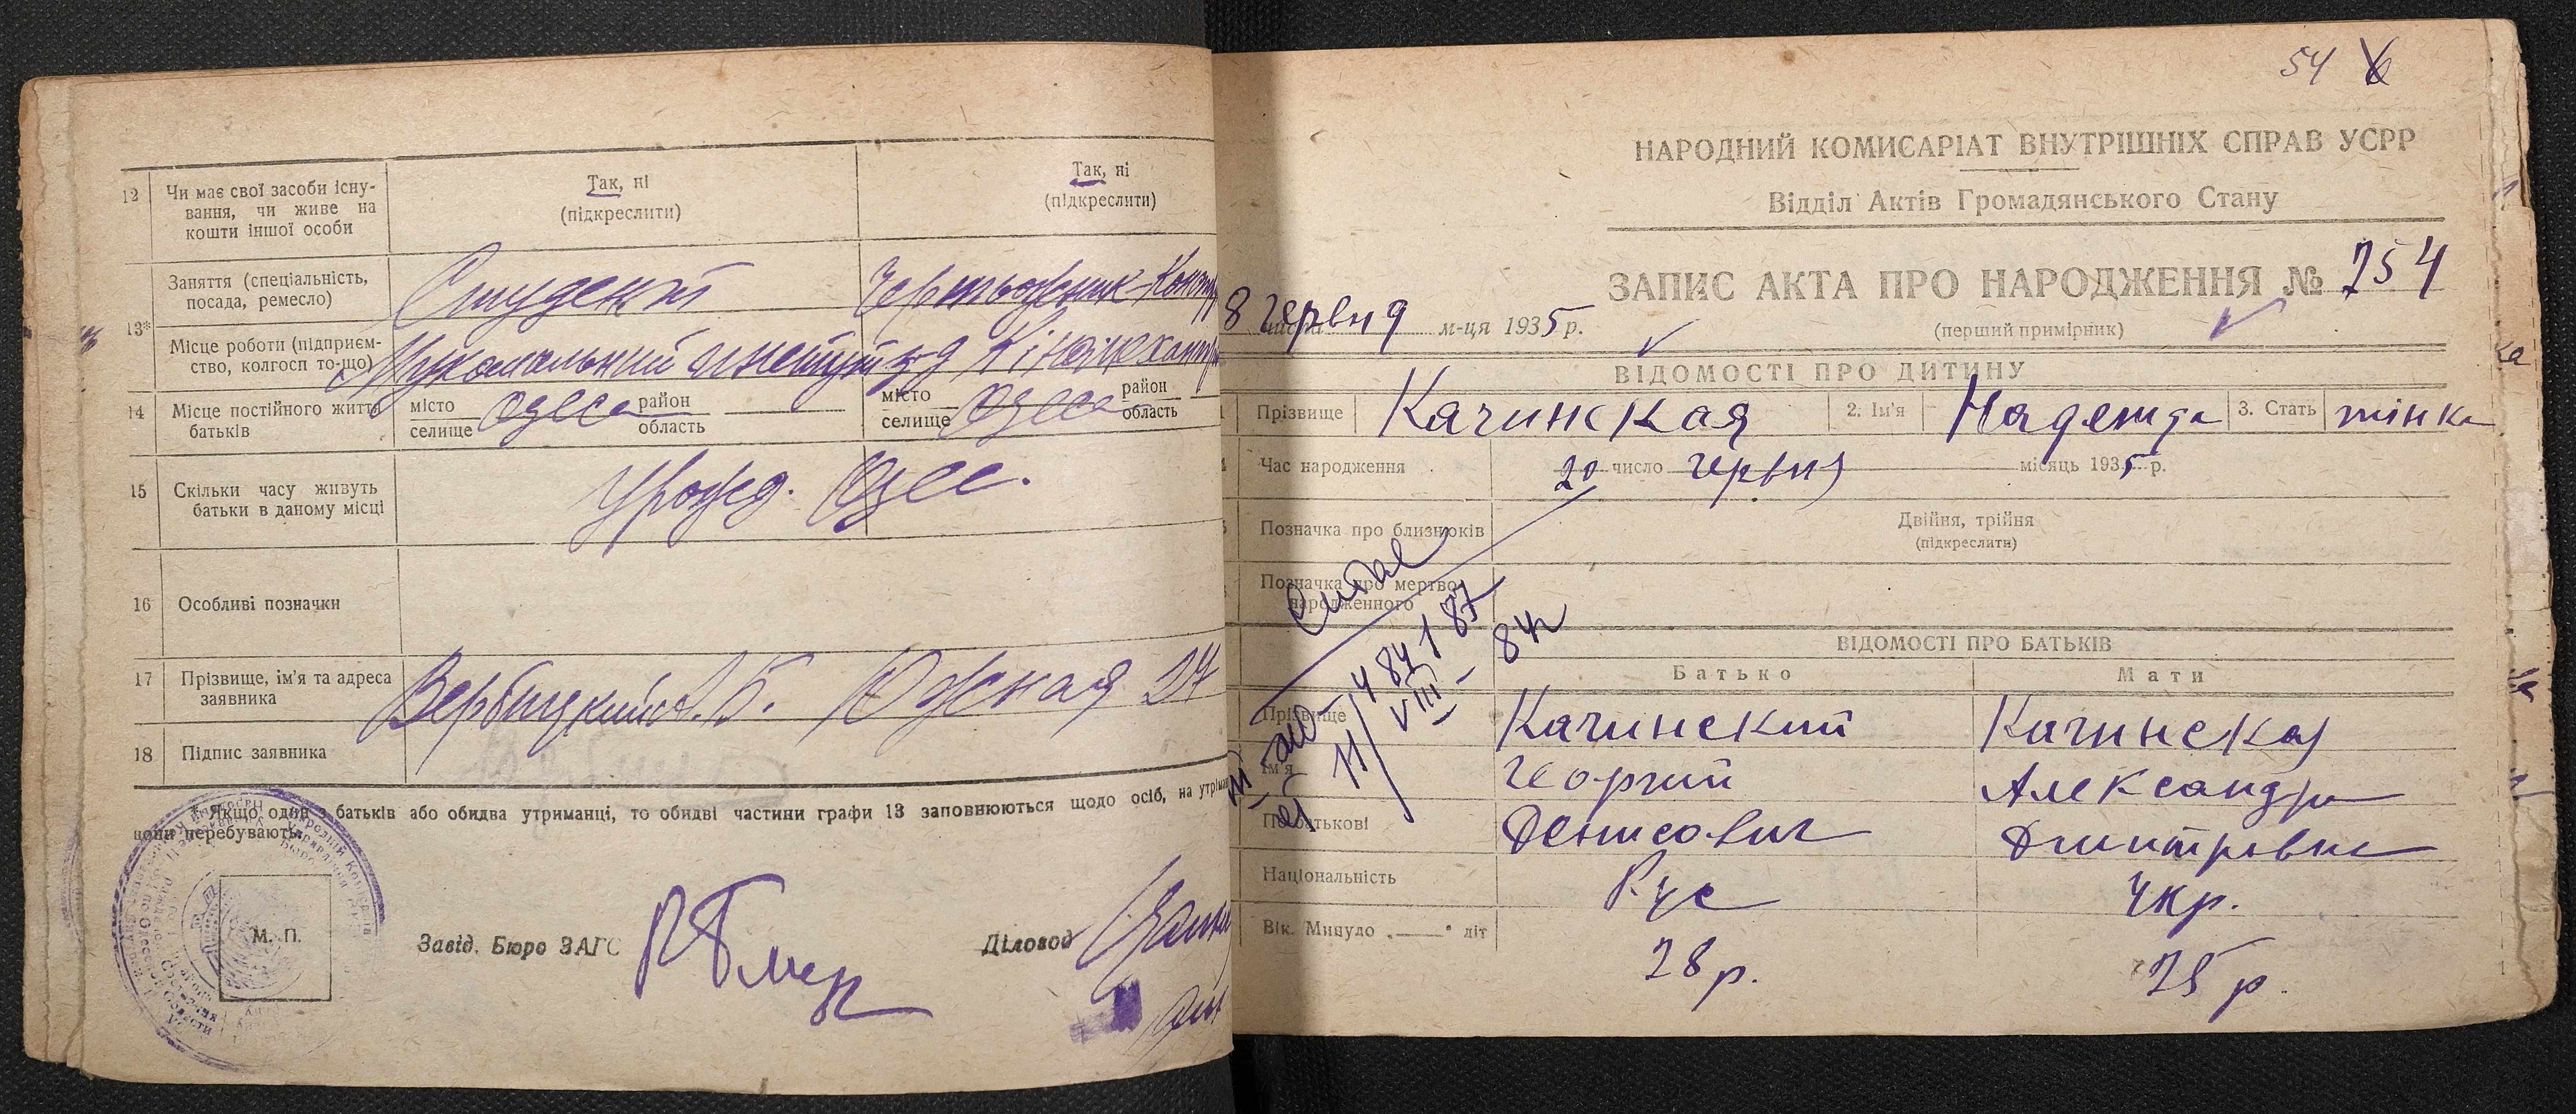 12 Чи має свої засоби існу-
вання, чи живе на
кошти іншої особи
Так, ні
(підкреслити)
Так, ні
(підкреслити)
13* Заняття (спеціальність,
посада, ремесло)
Студент
Чертьожник-Конст
Місце роботи (підприєм-
ство, колгосп то-що)
Мукомельний
14 Місце постійного життя
батьків
місто
селище
Одеса
район
область
місто
селище
Одеса
район
область
15 Скільки часу живуть
батьки в даному місці
Урожд. Одес.
16 Особливі позначки
17 Прізвище, ім'я та адреса
заявника
Вербицкий А. Б. Южная 27
18 Підпис заявника
* Якщо один з батьків або обидва утриманці, то обидві частини графи 13 заповнюються щодо осіб, на
вони перебувають.
М. П.
Завід. Бюро ЗАГС
Діловод
54 6
НАРОДНИЙ КОМІСАРІАТ ВНУТРІШНІХ СПРАВ УСРР
Відділ Актів Громадянського Стану
ЗАПИС АКТА ПРО НАРОДЖЕННЯ № 754
8 червня м-ця 1935 р.
(перший примірник)
ВІДОМОСТІ ПРО ДИТИНУ
Прізвище Качинская 2. Ім'я Надежда 3. Стать жінка
Час народження 20 число червня місяць 1935 р.
Позначка про близнюків
Двійня, трійня
(підкреслити)
Позначка про мертво-
народженного
ВІДОМОСТІ ПРО БАТЬКІВ
Батько Мати
Прізвище Качинский Качинская
Ім'я Георгий Александра
По батькові Денисович Дмитровна
Національність Рус Укр.
Вік. Минуло „—“ літ 28 р. 25 р.